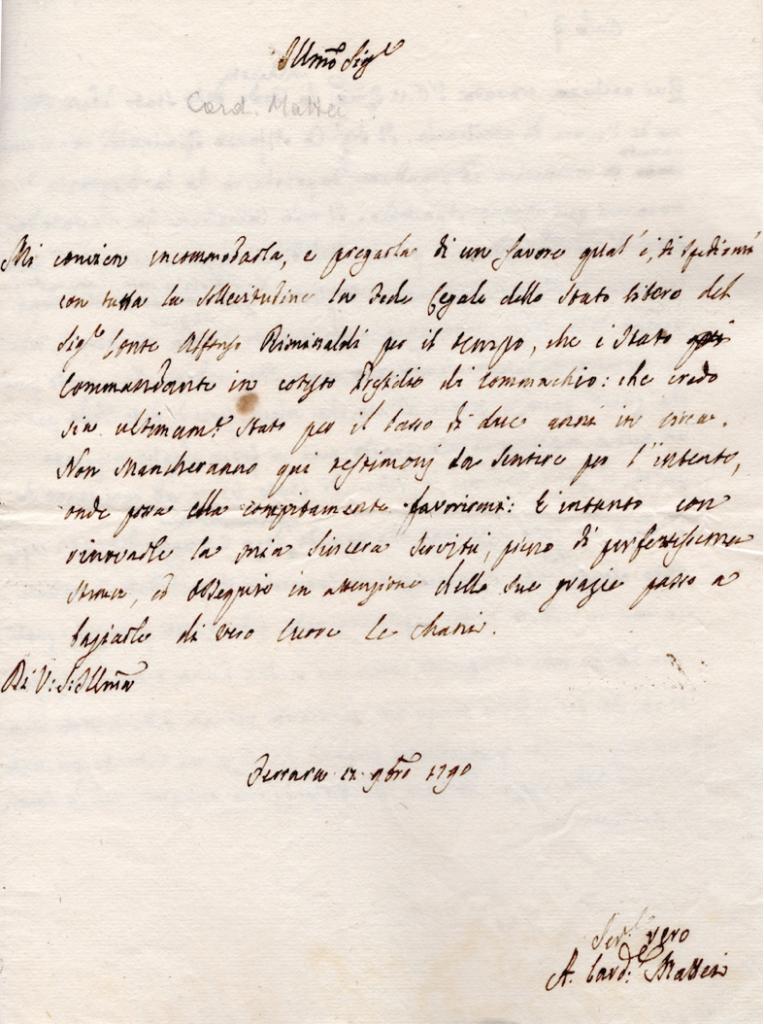 Illmo Sigre
Card. Mattei
Mi convien incommodarla, e pregarla di un favore qual'è, di spedirmi
con tutta la sollecitudine la Fede Legale dello Stato libero del
Sigre Conte Alfonso Riminaldi per il tempo, che è stato
Commandante in cotesto Presidio di Commachio: che credo
sia ultimamte stato per il lasso di due anni in circa.
Non Mancheranno qui testimonj da sentire per l'intento,
onde possa ella compitamente favorirmi: E intanto con
rinovarle la mia sincera servitù, pieno di perfettissima
stima, ed ossequio in attenzione delle sue grazie passo a
bagiarle di vero cuore le Mani.
Di V: S: Illma
Ferrara 9bre 1790
vero
A. Card: Mattei